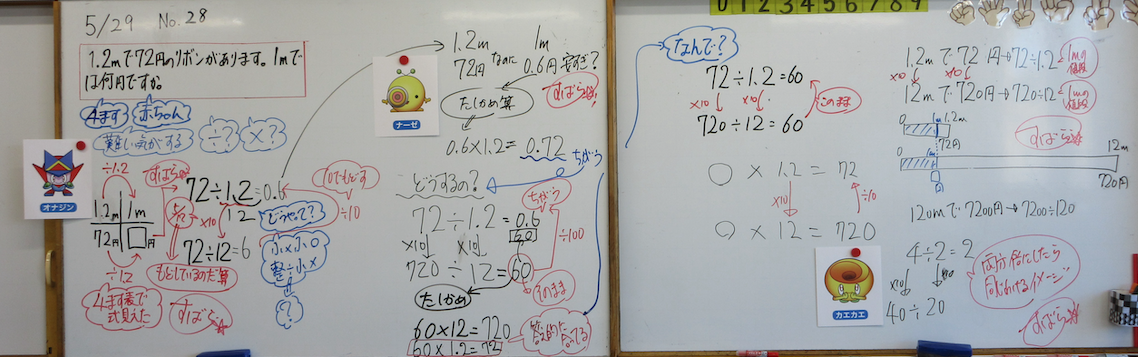 5/29 No.28
1.2mで72円のリボンがあります。1mで
は何円ですか。
4ます
赤ちゃん
難い気がする
÷?
×?
オナジン
÷1.2
1.2m 1m
72円 □円
÷1.2
4ます表で
式見えた
すばら
72÷1.2=0.6
×10
12
72÷12=6
もどしているのだ算
すばら
10でもどす
÷10
どうやって?
小×小○
整÷小×
?
1.2m 1m
72円 なのに 0.6円 安すぎ?
ナーゼ
たしかめ算
すばら
0.6×1.2=0.72
ちがう
どうするの?
ちがう
72÷1.2=0.6
60
×10 ×10
÷100
720÷12=60
そのまま
たしかめ
60×12=720
60×1.2=72
なんで?
72÷1.2=60
×10 ×10
このまま
720÷12=60
○×1.2=72
×10 ÷10
○×12=720
カエカエ
0 1 2 3 4 5 6 7 8 9
1.2mで72円→72÷1.2 1mの値段
×10 ×10
12mで720円→720÷12 1mの値段
すばら
0 1m 1.2m
72円
0 1m 12m
□
720円
120mで7200円→7200÷120
4÷2=2
×10 ×10
40÷20
すばら